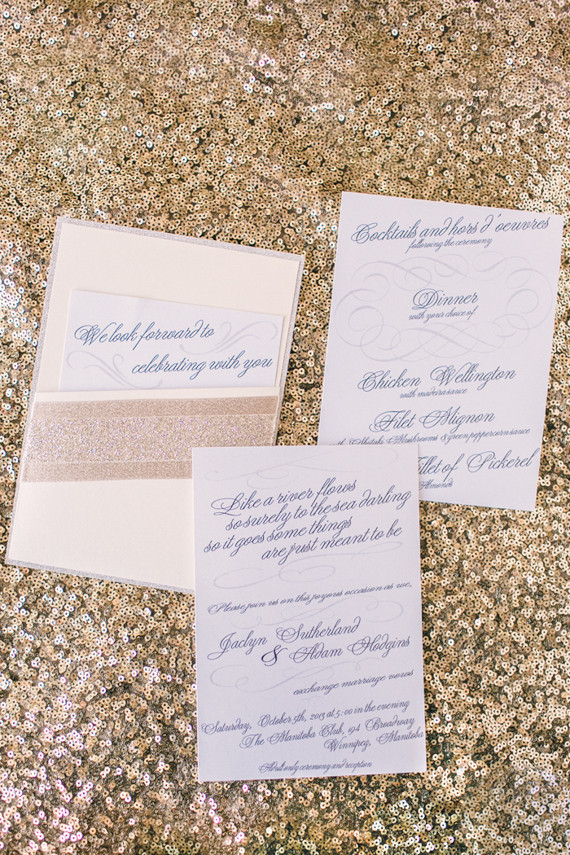 We look forward to
celebrating with you
Cocktails and hors d'oeuvres
following the ceremony
Dinner
with your choice of
Chicken Wellington
with madeira sauce
Filet Mignon
Mushrooms & green peppercorn sauce
of Pickerel
Almonds
Like a river flows
so surely to the sea darling
so it goes some things
are just meant to be
Please join us on this joyous occasion as we,
Jaclyn Sutherland
& Adam Hodgins
exchange marriage vows
Saturday, October 5th, 2013 at 5:00 in the evening
The Manitoba Club, 194 Broadway
Winnipeg, Manitoba
Adult only ceremony and reception